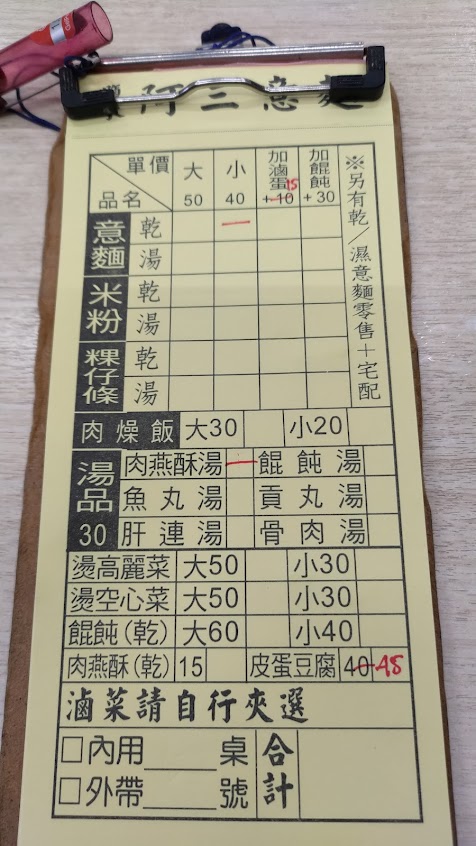 阿三意麵
單價 大 小 加滷蛋 加餛飩
品名 50 40 +10 15 +30
意麵 乾 一
湯
米粉 乾
湯
粿仔條 乾
湯
※另有乾/濕意麵零售+宅配
肉燥飯 大30 小20
湯品30
肉燕酥湯 一 餛飩湯
魚丸湯 貢丸湯
肝連湯 骨肉湯
燙高麗菜 大50 小30
燙空心菜 大50 小30
餛飩(乾) 大60 小40
肉燕酥(乾) 15 皮蛋豆腐 40 45
滷菜請自行夾選
□內用____桌 合計
□外帶____號